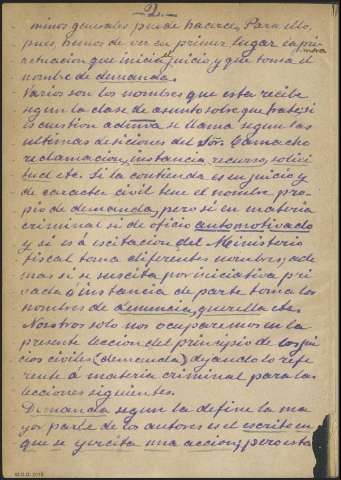 -2.-
minos generales puede hacerse. Para ello,
pues hemos de ver en primer lugar la pri
mera
actuacion que inicia el juicio y que toma el
nombre de demanda.
Varios son los nombres que esta recibe
segun la clase de asunto sobre que trate; si
es cuestion adtiva se llama segun las
ultimas desiciones del Sor. Camacho
reclamacion, instancia, recurso, solici
tud etc. Si la contienda es en juicio y
de caracter civil tiene el nombre pro-
pio de demanda, pero si en materia
criminal si de oficio automotivado
y si es á escitacion del Ministerio
fiscal toma diferentes nombres; ade
mas si se suscita por iniciativa pri
vada ó instancia de parte toma los
nombres de denuncia, querella etc.
Nosotros solo nos ocuparemos en la
presente leccion del principio de los jui
cios civiles (demanda) dejando lo refe
rente á materia criminal para las
lecciones siguientes.
Demanda segun la define la ma
yor parte de los autores es el escrito en
que se ejercita una accion; pero esta